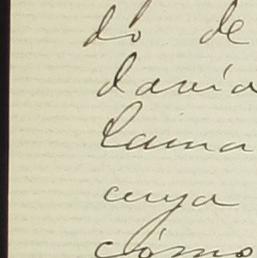 do de
davía
lama
cuya
cómo